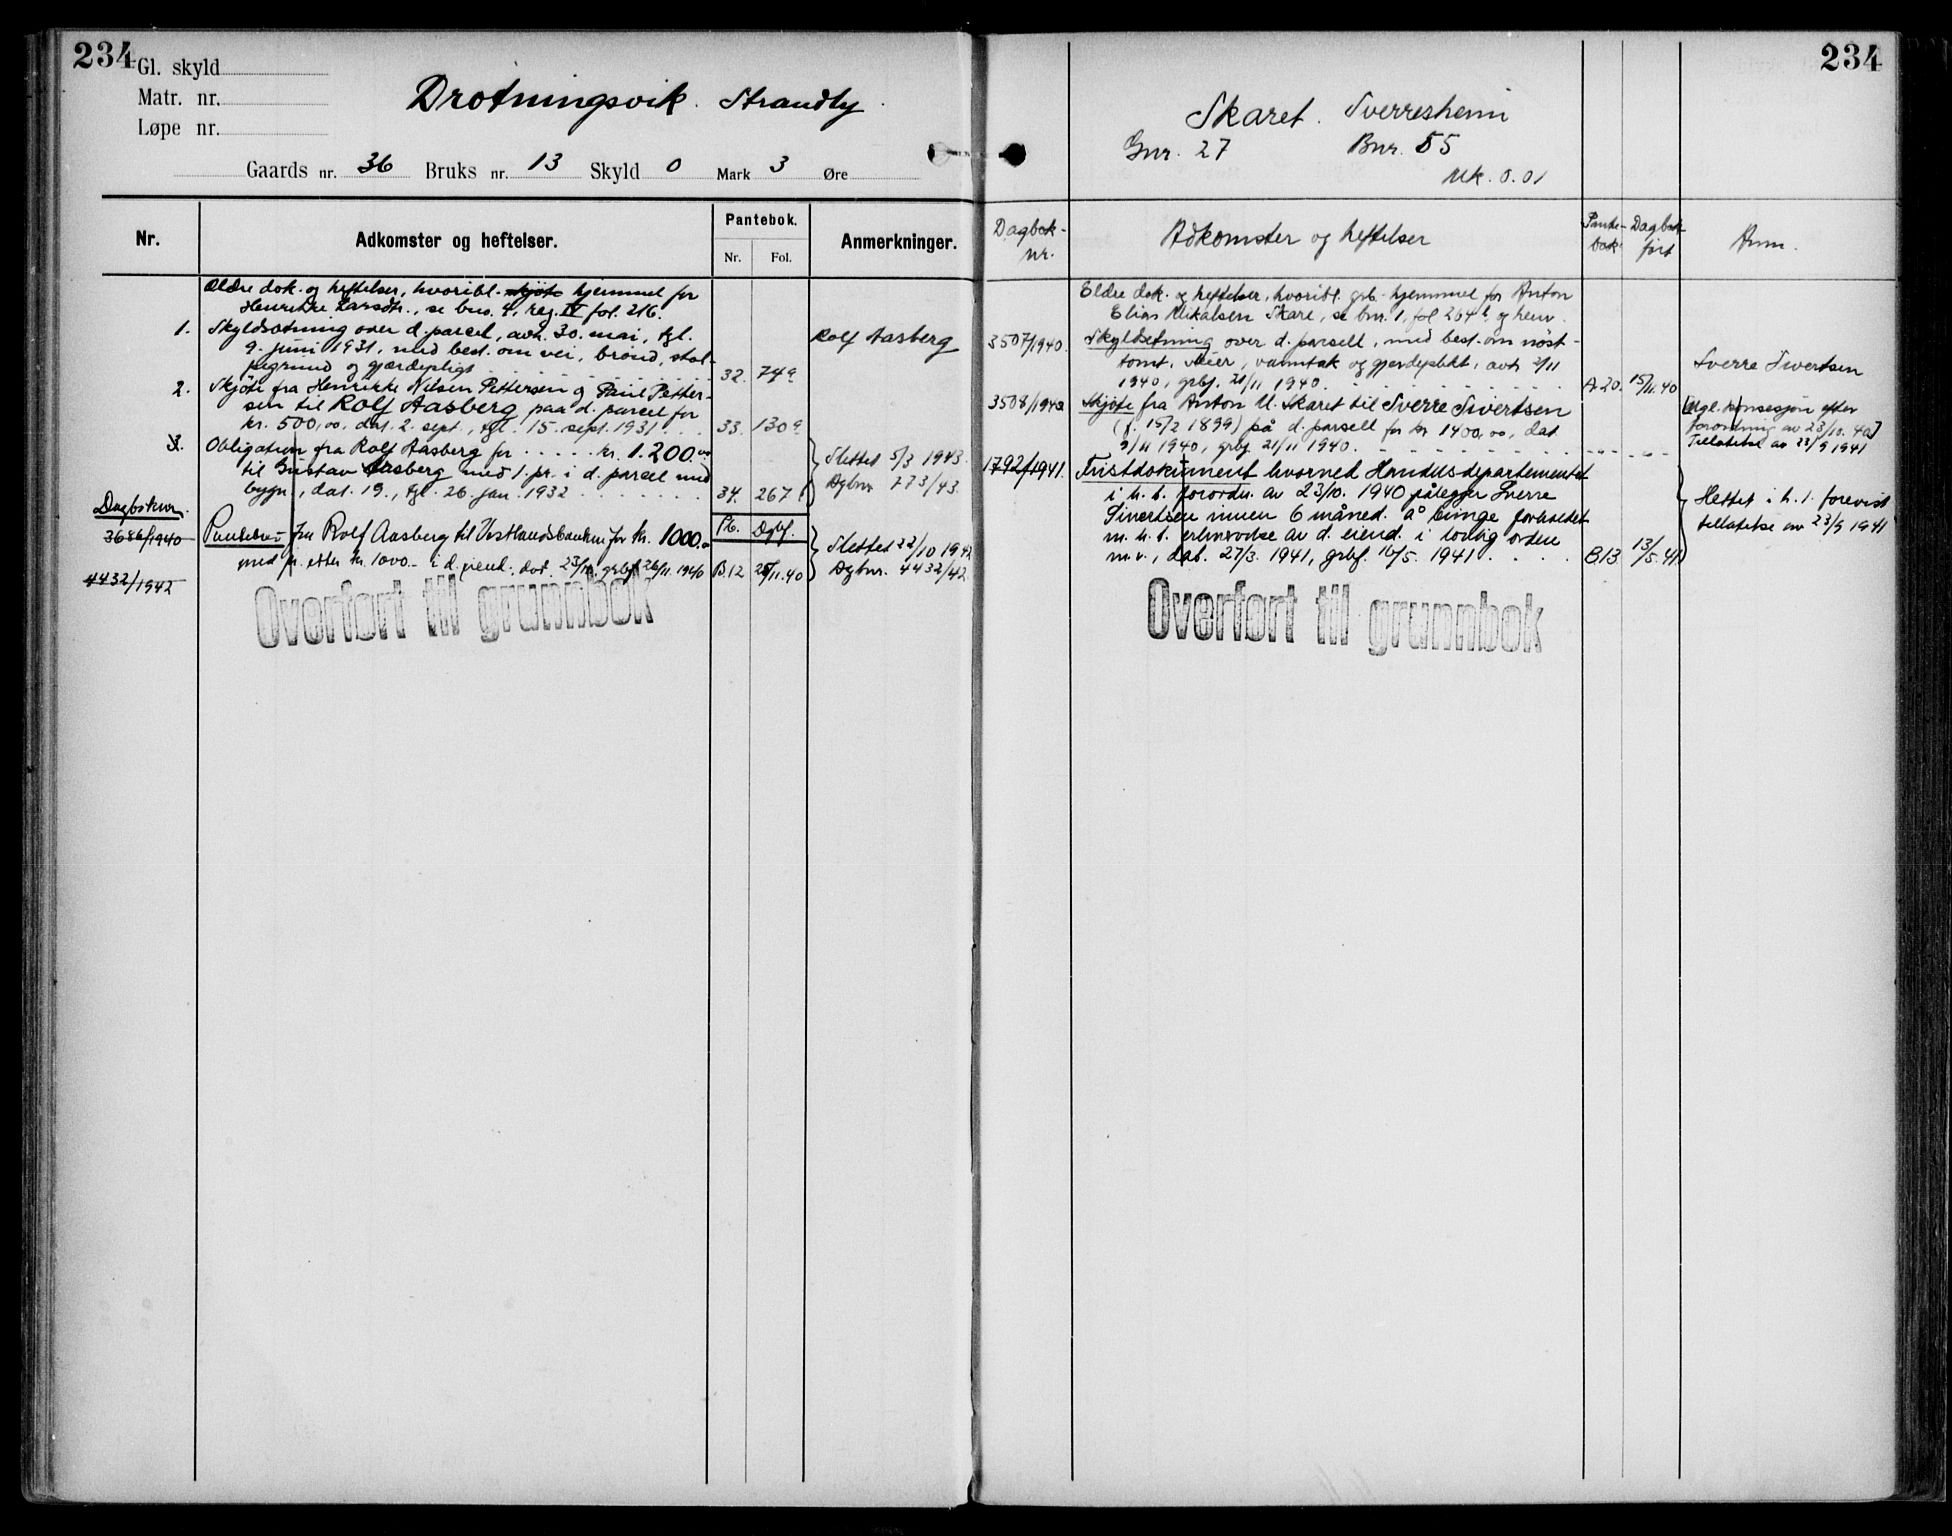 234
Gl. skyld
Matr. nr.
Løpe nr.
Drotningsvik. Strandly.
Gaards nr. 36 Bruks nr. 13 Skyld 0 Mark 3 Øre
Nr.
Adkomster og heftelser.
Pantebok.
Nr. Fol.
Anmerkninger.
Ældre dok. og heftelser, hvoribl. skjøte hjemmel for
Henrikke Larsdtr., se bno. 4, reg. IV fol. 216.
1. Skyldsætning over d. parcel, avh. 30. mai, tgl.
9. juni 1931, med best. om vei, brönd, stol-
pegrund og gjærdepligt 32. 74a
Rolf Aasberg
2. Skjöte fra Henrikke Nilsen Pettersen og Paul Petter-
sen til Rolf Aasberg paa d. parcel for
kr. 500,00, dat. 2. sept., tgl. 15. sept. 1931 33. 130a
3. Obligation fra Rolf Aasberg for kr. 1.200.00
til Gustav Aasberg med 1. pr. i d. parcel med
bygn., dat. 19., tgl. 26. jan. 1932 34. 267
Slettet 5/3 1943.
Dgbnr 773/43.
Dagboknr.
3686/1940
Pb. Dgbf.
Pantebrev fra Rolf Aasberg til Vestlandsbanken for kr. 1000.-
med pr. etter kr. 1000.- i d. eiend., dat. 23/11, grbf. 26/11 1940 B.12 25/11.40
Slettet 22/10 1942
Dgbnr. 4432/42
4432/1942
Overført til grunnbok
234
Skaret. Sverresheim
Gnr. 27 Bnr. 55
Mk. 0.01
Dagbok-
nr.
Adkomster og heftelser
Pante-
bok
Dagbok
ført
Anm.
Eldre dok. og heftelser, hvoribl. grb. hjemmel for Anton
Elias Mikalsen Skare, se bnr. 1, fol 264 b. og henv.
3507/1940. Skyldsetning over d. parsell, med best. om nöst-
tomt, veier, vanntak og gjerdeplikt, avh. 2/11
1940, grbf. 21/11 1940 A 20. 15/11.40
Sverre Sivertsen
3508/1940 Skjöte fra Anton M. Skaret til Sverre Sivertsen
(f. 15/2 1899) på d. parsell for kr 1400,00, dat
2/11 1940, grbf 21/11 1940
[Mgl. konsesjon efter
forordning av 23/10. 40]
Tillatelse av 23/9 1941
1792/1941. Fristdokument hvorved Handelsdepartementet
i h. t. forordn. av 23/10. 1940 pålegger Sverre
Sivertsen innen 6 måned. å bringe forholdet
m. h. t. erhvervelse av d. eiend. i lovlig orden
m.v., dat. 27/3. 1941, grbf. 16/5. 1941 B13 13/5.41
Slettet i h. t. forevist
tillatelse av 23/9 1941
Overført til grunnbok